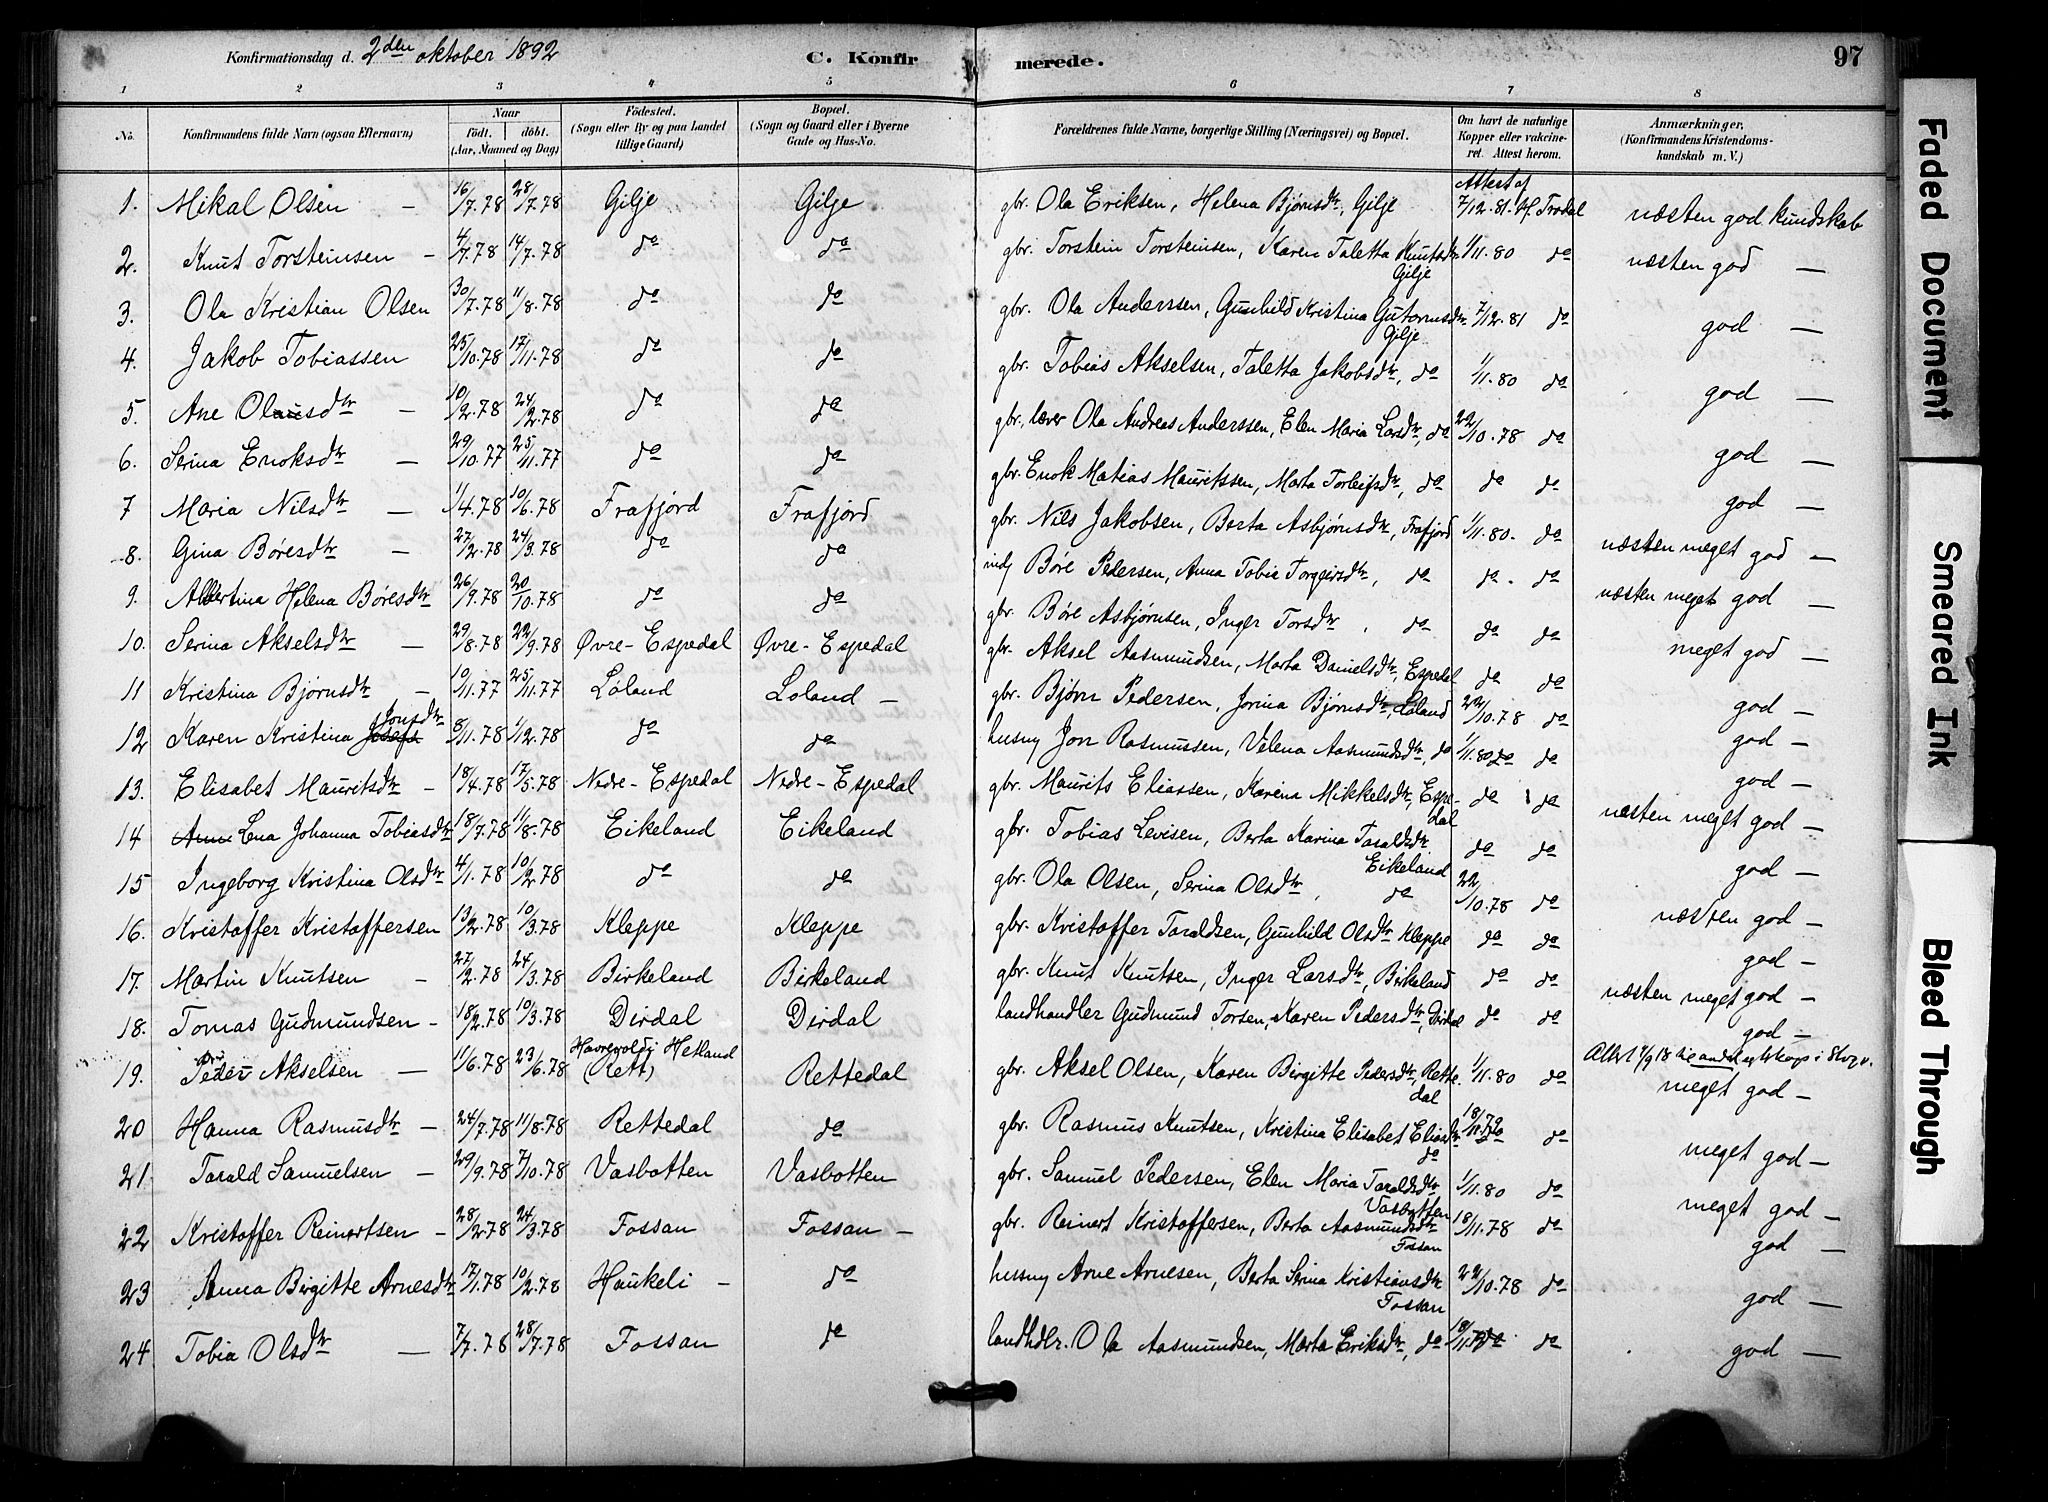 Konfirmationsdag d. 2den oktober 1892 C. Konfirmerede. 97
1 2 3 4 5 6 7 8
No. Konfirmandens fulde Navn (ogsaa Efternavn) Naar födt. döbt. (Aar, Maaned og Dag) Födested. (Sogn eller By og paa Landet tillige Gaard) Bopæl. (Sogn og Gaard eller i Byerne Gade og Hus-No. Forældrenes fulde Navne, borgerlige Stilling (Næringsvei) og Bopæl. Om havt de naturlige Kopper eller vakcineret. Attest herom. Anmærkninger, (Konfirmandens Kristendomskundskab m. V.)
1. Mikal Olsen — 16/7.78 28/7.78 Gilje Gilje gbr. Ola Eriksen, Helena Bjørnsdtr, Gilje Attest af 7/12.81. H. Trodal næsten god kundskab
2. Knut Torsteinsen — 4/7.78 14/7.78 do do gbr. Torstein Torsteinsen, Karen Taletta Knutsdtr Gilje 1/11.80 do næsten god —
3. Ola Kristian Olsen 30/7.78 11/8.78 do do gbr. Ola Anderssen, Gunhild Kristina Gutormsdtr Gilje 7/12.81 do god —
4. Jakob Tobiassen 25/10.78 17/11.78 do do gbr. Tobias Akselsen, Taletta Jakobsdtr, do 1/11.80 do god —
5. Ane Olausdtr — 10/2.78 24/2.78 do do gbr., lærer Ola Andreas Anderssen, Elen Maria Larsdtr, do 22/10.78 do god —
6. Serina Enoksdtr — 29/10.77 25/11.77 do do gbr. Enok Matias Mauritssen, Marta Torleifsdtr, do do do god —
7 Maria Nilsdtr — 1/4.78 10/6.78 Frafjord Frafjord gbr. Nils Jakobsen, Berta Asbjørnsdtr, Frafjord 1/11.80. do næsten meget god —
8. Gina Børesdtr — 27/2.78 24/3.78 do do indj Børe Pedersen, Anna Tobie Torgeirsdtr, do do. do næsten meget god —
9. Albertina Helena Børesdtr 26/9.78 20/10.78 do do gbr. Børe Asbjørnsen, Inger Torsdtr, do do do meget god —
10. Serina Akselsdtr — 29/8.78 22/9.78 Øvre-Espedal Øvre-Espedal gbr. Aksel Aasmundsen, Marta Danielsdtr, Espedal do do god —
11 Kristina Bjørnsdtr — 10/11.77 25/11.77 Loland Loland — gbr. Bjørn Pedersen, Jorina Bjørnsdtr, Loland 22/10.78 do god —
12 Karen Kristina Jonsdtr 8/11.78 1/12.78 do do husmy Jon Rasmussen, Velena Aasmundsdtr, do 1/11.80 do do god —
13. Elisabet Mauritsdtr — 18/4.78 17/5.78 Nedre-Espedal Nedre-Espedal gbr. Maurits Eliassen, Karina Mikkelsdtr, Espedal do do næsten meget god —
14 Anne Lena Johanna Tobiasdtr 18/7.78 11/8.78 Eikeland Eikeland gbr. Tobias Levisen, Berta Karina Taraldsdtr Eikeland do do god —
15 Ingeborg Kristina Olsdtr 4/1.78 10/2.78 do do gbr. Ola Olsen, Serina Olsdtr, do 22/10.78 do næsten god —
16. Kristoffer Kristoffersen 13/2.78 10/3.78 Kleppe Kleppe gbr. Kristoffer Taraldsen, Gunhild Olsdtr Kleppe do do god —
17. Martin Knutsen — 27/2.78 24/3.78 Birkeland Birkeland gbr. Knut Knutsen, Inger Larsdtr, Birkeland do do næsten meget god —
18. Tomas Gudmundsen — 18/2.78 10/3.78 Dirdal Dirdal landhandler Gudmund Torsen, Karen Pedersdtr, Dirdal do do god —
19. Peder Akselsen — 11/6.78 23/6.78 Hetland (Rett) Rettedal gbr. Aksel Olsen, Karen Birgitte Pedersdtr, Rettedal 1/11.80 do meget god —
20 Hanna Rasmusdtr — 24/7.78 11/8.78 Rettedal do gbr. Rasmus Knutsen, Kristina Elisabet Eliasdtr do 18/11.78 do meget god —
21. Tarald Samuelsen — 29/9.78 7/10.78 Vasbotten Vasbotten gbr. Samuel Pedersen, Elen Maria Taraldsdtr Vasbotten 1/11.80 do meget god —
22 Kristoffer Reinertsen — 28/2.78 24/3.78 Fossan Fossan — gbr. Reinert Kristoffersen, Berta Aasmundsdtr Fossan 18/11.78 do god —
23 Anna Birgitte Arnesdtr 17/1.78 10/2.78 Haukeli — do husmy Arne Arnesen, Berta Serina Kristiansdtr Fossan 22/10.78 do god —
24 Tobia Olsdtr — 7/7.78 28/7.78 Fossan do landhdlr. Ola Aasmundsen, Marta Eriksdtr, do 18/11.78 do god —
Faded Document
Smeared Ink
Bleed Through